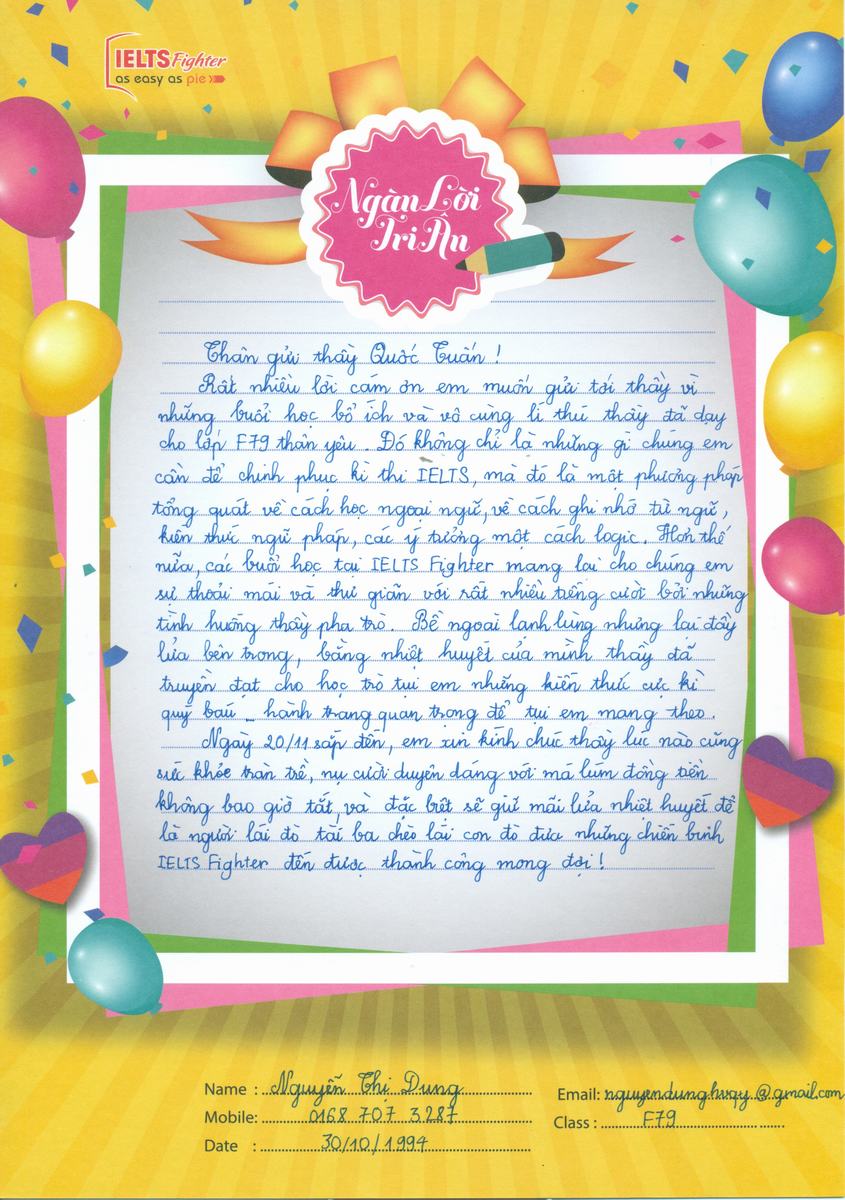 IELTS Fighter
as easy as pie
Ngàn Lời
Tri Ân
Thân gửi thầy Quốc Tuấn !
Rất nhiều lời cảm ơn em muốn gửi tới thầy vì
những buổi học bổ ích và vô cùng lí thú thầy đã dạy
cho lớp F79 thân yêu. Đó không chỉ là những gì chúng em
cần để chinh phục kì thi IELTS, mà đó là một phương pháp
tổng quát về cách học ngoại ngữ, về cách ghi nhớ từ ngữ,
kiến thức ngữ pháp, các ý tưởng một cách logic. Hơn thế
nữa, các buổi học tại IELTS Fighter mang lại cho chúng em
sự thoải mái và thư giãn với rất nhiều tiếng cười bởi những
tình huống thầy pha trò. Bề ngoài lạnh lùng nhưng lại đầy
lửa bên trong, bằng nhiệt huyết của mình thầy đã
truyền đạt cho học trò tụi em những kiến thức cực kì
quý báu _ hành trang quan trọng để tụi em mang theo.
Ngày 20/11 sắp đến, em xin kính chúc thầy lúc nào cũng
sức khỏe tràn trề, nụ cười duyên dáng với má lúm đồng tiền
không bao giờ tắt, và đặc biệt sẽ giữ mãi lửa nhiệt huyết để
là người lái đò tài ba chèo lái con đò đưa những chiến binh
IELTS Fighter đến được thành công mong đợi !
Name : Nguyễn Thị Dung
Email: nguyendunghvqy@gmail.com
Mobile: 0168 707 3287
Class : F79
Date : 30/10/1994